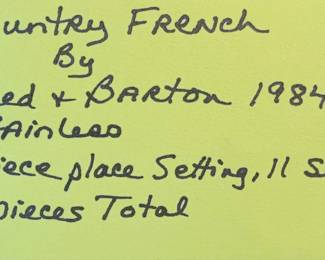 untry French
By
ed + Barton 1984
ainless
iece place Setting, 11 S
pieces Total